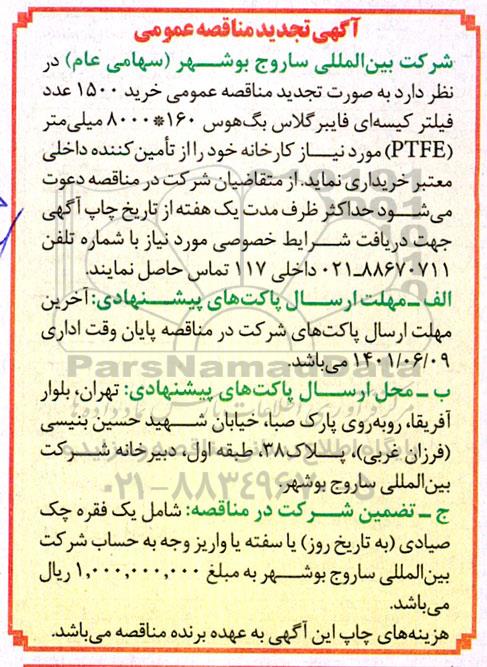 آگهی تجدید مناقصه عمومی
شرکت بین‌المللی ساروج بوشهر (سهامی عام) در
نظر دارد به صورت تجدید مناقصه عمومی خرید ۱۵۰۰ عدد
فیلتر کیسه‌ای فایبرگلاس بگ‌هوس ۱۶۰*۸۰۰۰ میلی‌متر
(PTFE) مورد نیاز کارخانه خود را از تأمین‌کننده داخلی
معتبر خریداری نماید. از متقاضیان شرکت در مناقصه دعوت
می‌شود حداکثر ظرف مدت یک هفته از تاریخ چاپ آگهی
جهت دریافت شرایط خصوصی مورد نیاز با شماره تلفن
۸۸۶۷۰۷۱۱-۰۲۱ داخلی ۱۱۷ تماس حاصل نمایند.
الف ـ مهلت ارسال پاکت‌های پیشنهادی: آخرین
مهلت ارسال پاکت‌های شرکت در مناقصه پایان وقت اداری
۱۴۰۱/۰۶/۰۹ می‌باشد.
ParsNamadData
ب ـ محل ارسال پاکت‌های پیشنهادی: تهران، بلوار
آفریقا، روبه‌روی پارک صبا، خیابان شهید حسین بنیسی
(فرزان غربی)، پلاک۳۸، طبقه اول، دبیرخانه شرکت
بین‌المللی ساروج بوشهر.
۰۲۱-۸۸۳۴۹۶۷۰
ج ـ تضمین شرکت در مناقصه: شامل یک فقره چک
صیادی (به تاریخ روز) یا سفته یا واریز وجه به حساب شرکت
بین‌المللی ساروج بوشهر به مبلغ ۱,۰۰۰,۰۰۰,۰۰۰ ریال
می‌باشد.
هزینه‌های چاپ این آگهی به عهده برنده مناقصه می‌باشد.